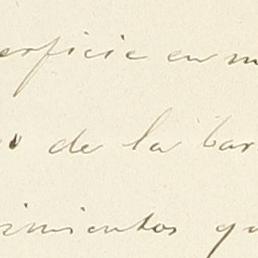 erficie en m
de la bar
imientos qu